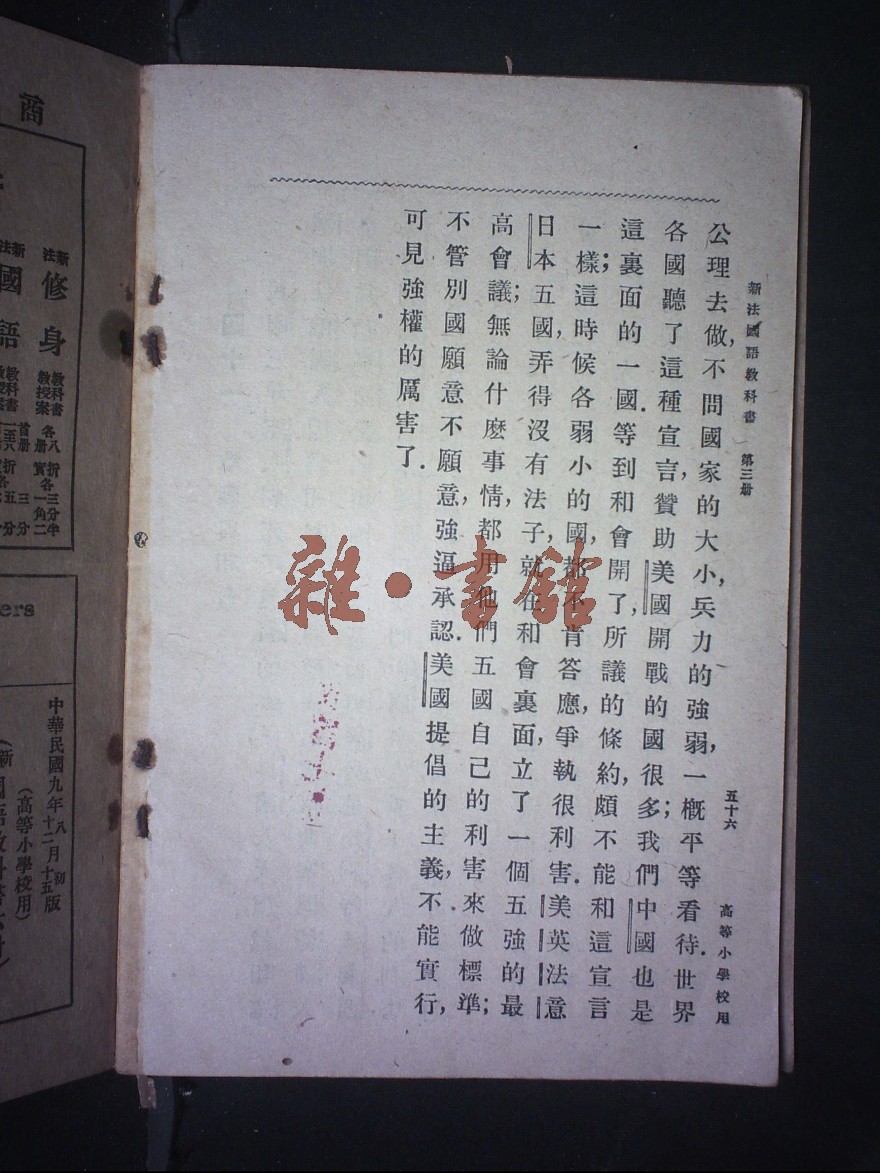 新法國語教科書 第三册 五十六 高等小學校用
公理去做,不問國家的大小,兵力的強弱,一概平等看待.世界
各國聽了這種宣言,贊助美國開戰的國很多;我們中國也是
這裏面的一國.等到和會開了,所議的條約,頗不能和這宣言
一樣;這時候各弱小的國,都不肯答應,爭執很利害.美英法意
日本五國,弄得沒有法子,就在和會裏面,立了一個五強的最
高會議;無論什麽事情,都用他們五國自己的利害來做標準;
不管別國願意不願意,強逼承認.美國提倡的主義,不能實行,
可見強權的厲害了.
雜·書館
商
新法 修身 教科書 教授案 各八册 折實各一角二分半
新法 國語
ers
中華民國九年八月初版
(高等小學校用)